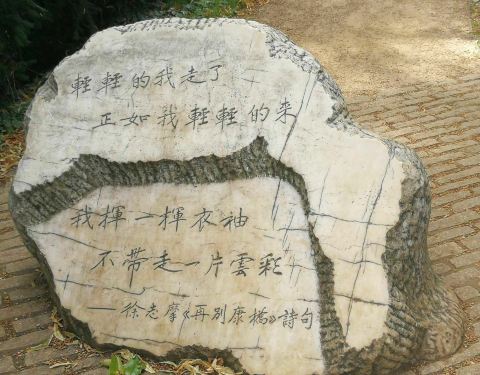 輕輕的我走了
正如我輕輕的来
我揮一揮衣袖
不带走一片雲彩
徐志摩《再别康橋》詩句